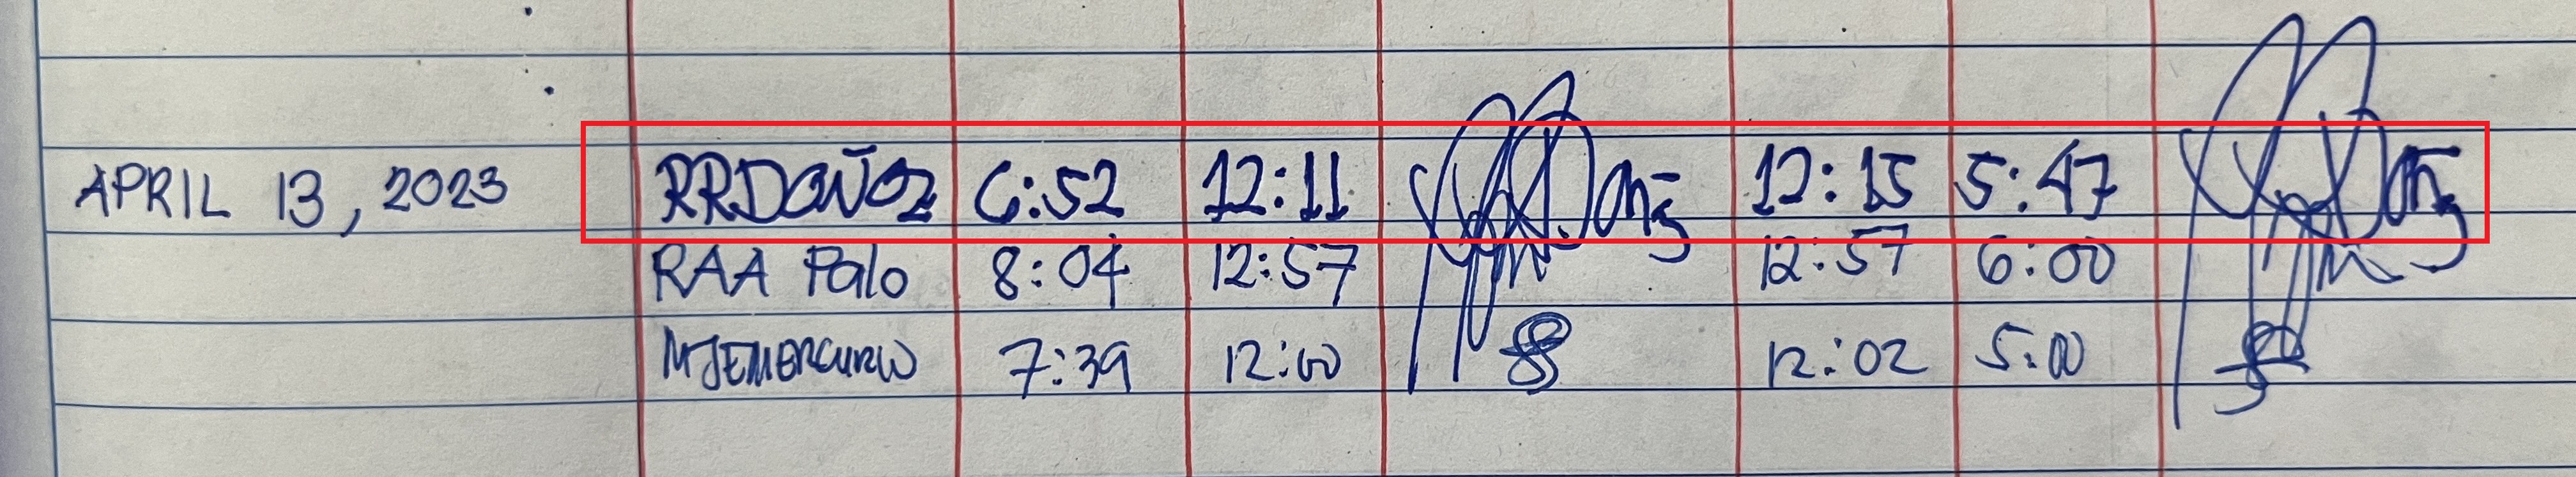 APRIL 13, 2023 RRDOÑOZ 6:52 12:11 12:15 5:47
RAA Palo 8:04 12:57 12:57 6:00
MJEMERCURIO 7:39 12:00 12:02 5:00